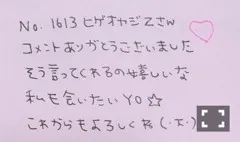 No. 1613 ヒゲオヤジZさん
コメントありがとうございました
そう言ってくれるの嬉しいな
私も会いたいYO☆
これからもよろしくね(·x·)